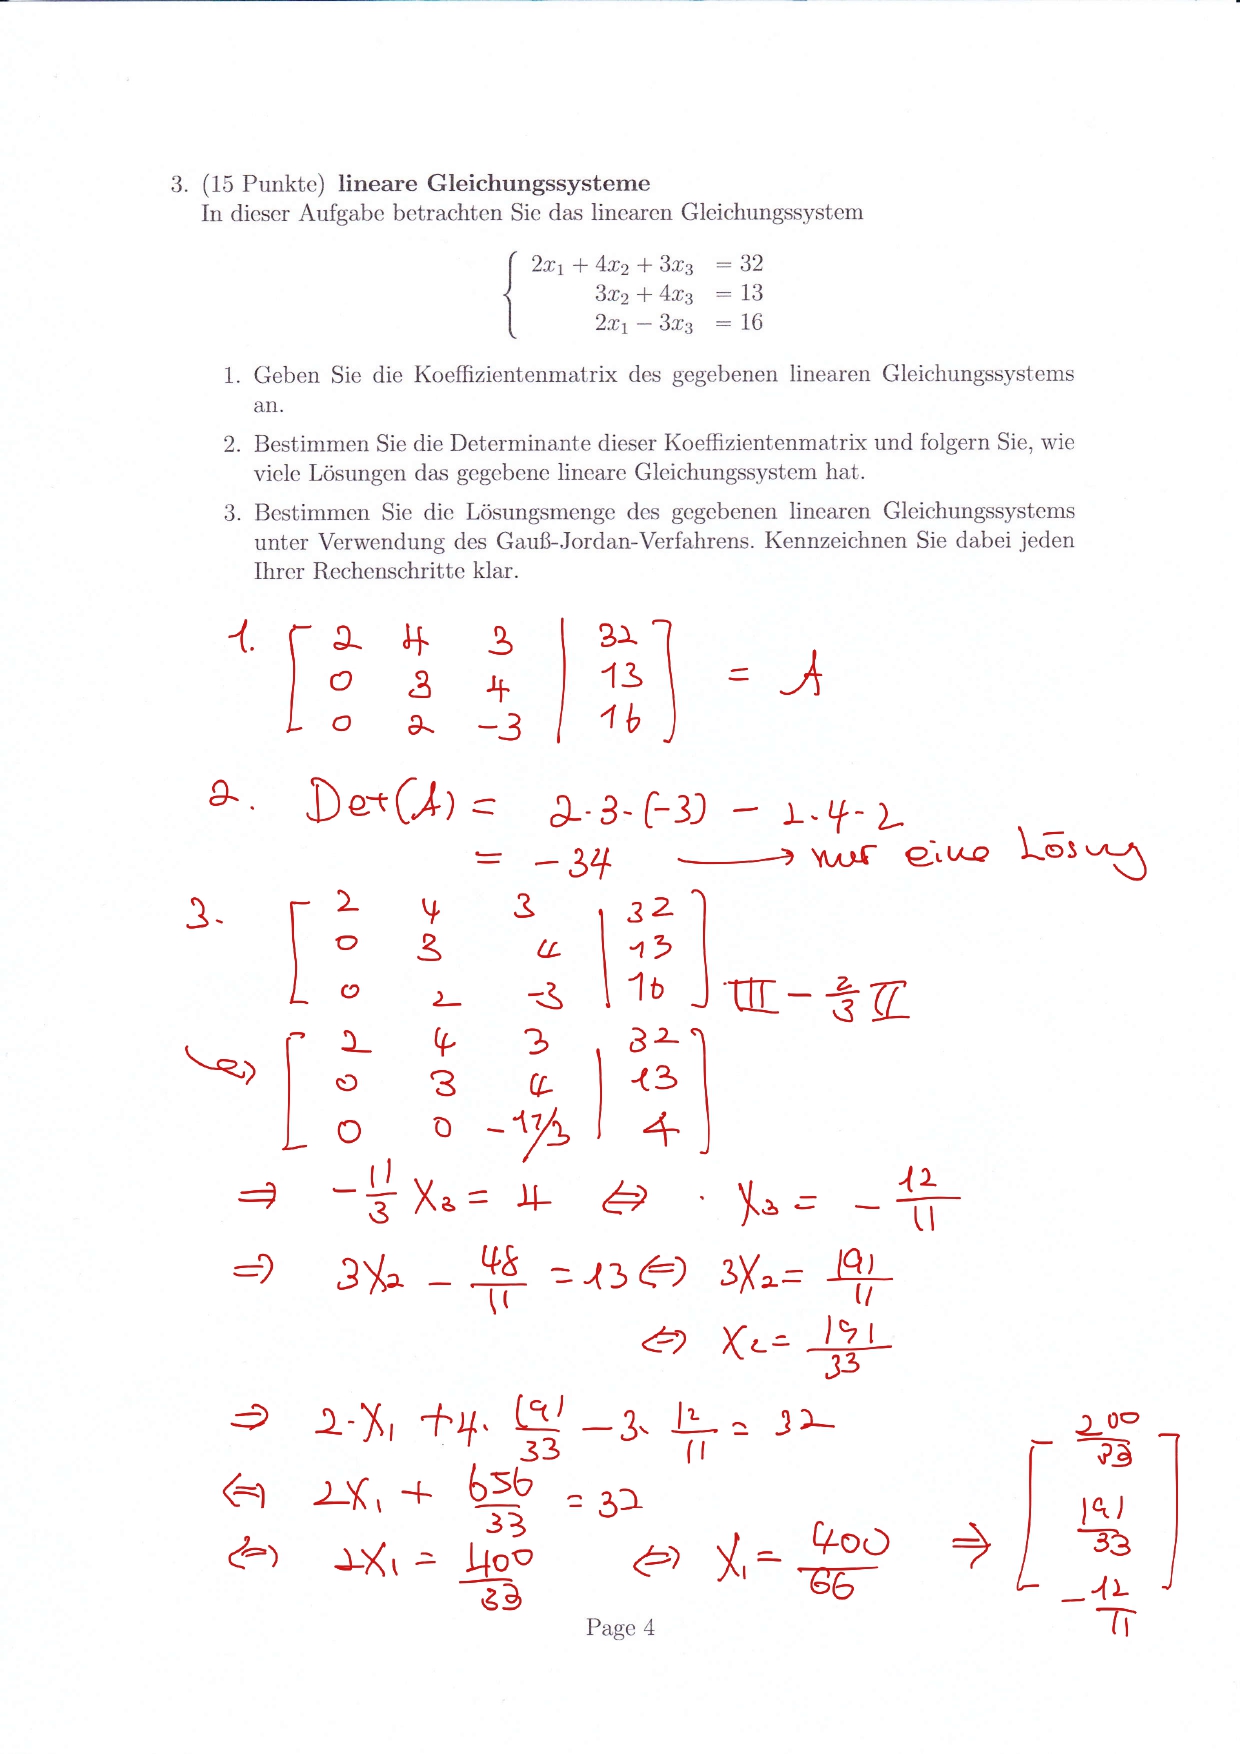 3. (15 Punkte) lineare Gleichungssysteme
In dieser Aufgabe betrachten Sie das linearen Gleichungssystem
2x₁ + 4x₂ + 3x₃ = 32
3x₂ + 4x₃ = 13
2x₁ − 3x₃ = 16
1. Geben Sie die Koeffizientenmatrix des gegebenen linearen Gleichungssystems
an.
2. Bestimmen Sie die Determinante dieser Koeffizientenmatrix und folgern Sie, wie
viele Lösungen das gegebene lineare Gleichungssystem hat.
3. Bestimmen Sie die Lösungsmenge des gegebenen linearen Gleichungssystems
unter Verwendung des Gauß-Jordan-Verfahrens. Kennzeichnen Sie dabei jeden
Ihrer Rechenschritte klar.
1. [ 2 4 3 | 32 ]
0 3 4 | 13 = A
0 2 -3 | 16
2. Det(A) = 2·3·(-3) - 2·4·2
= -34 → nur eine Lösung
3. [ 2 4 3 | 32 ]
0 3 4 | 13
0 2 -3 | 16 III - 2/3 II
[ 2 4 3 | 32 ]
0 3 4 | 13
0 0 -17/3 | 4
⇒ -11/3 X₃ = 4 ⇔ X₃ = -12/11
⇒ 3X₂ - 48/11 = 13 ⇔ 3X₂ = 191/11
⇔ X₂ = 191/33
⇒ 2·X₁ + 4·191/33 - 3·12/11 = 32
⇔ 2X₁ + 656/33 = 32
⇔ 2X₁ = 400/33 ⇔ X₁ = 400/66 ⇒ [ 200/33
191/33
-12/11 ]
Page 4